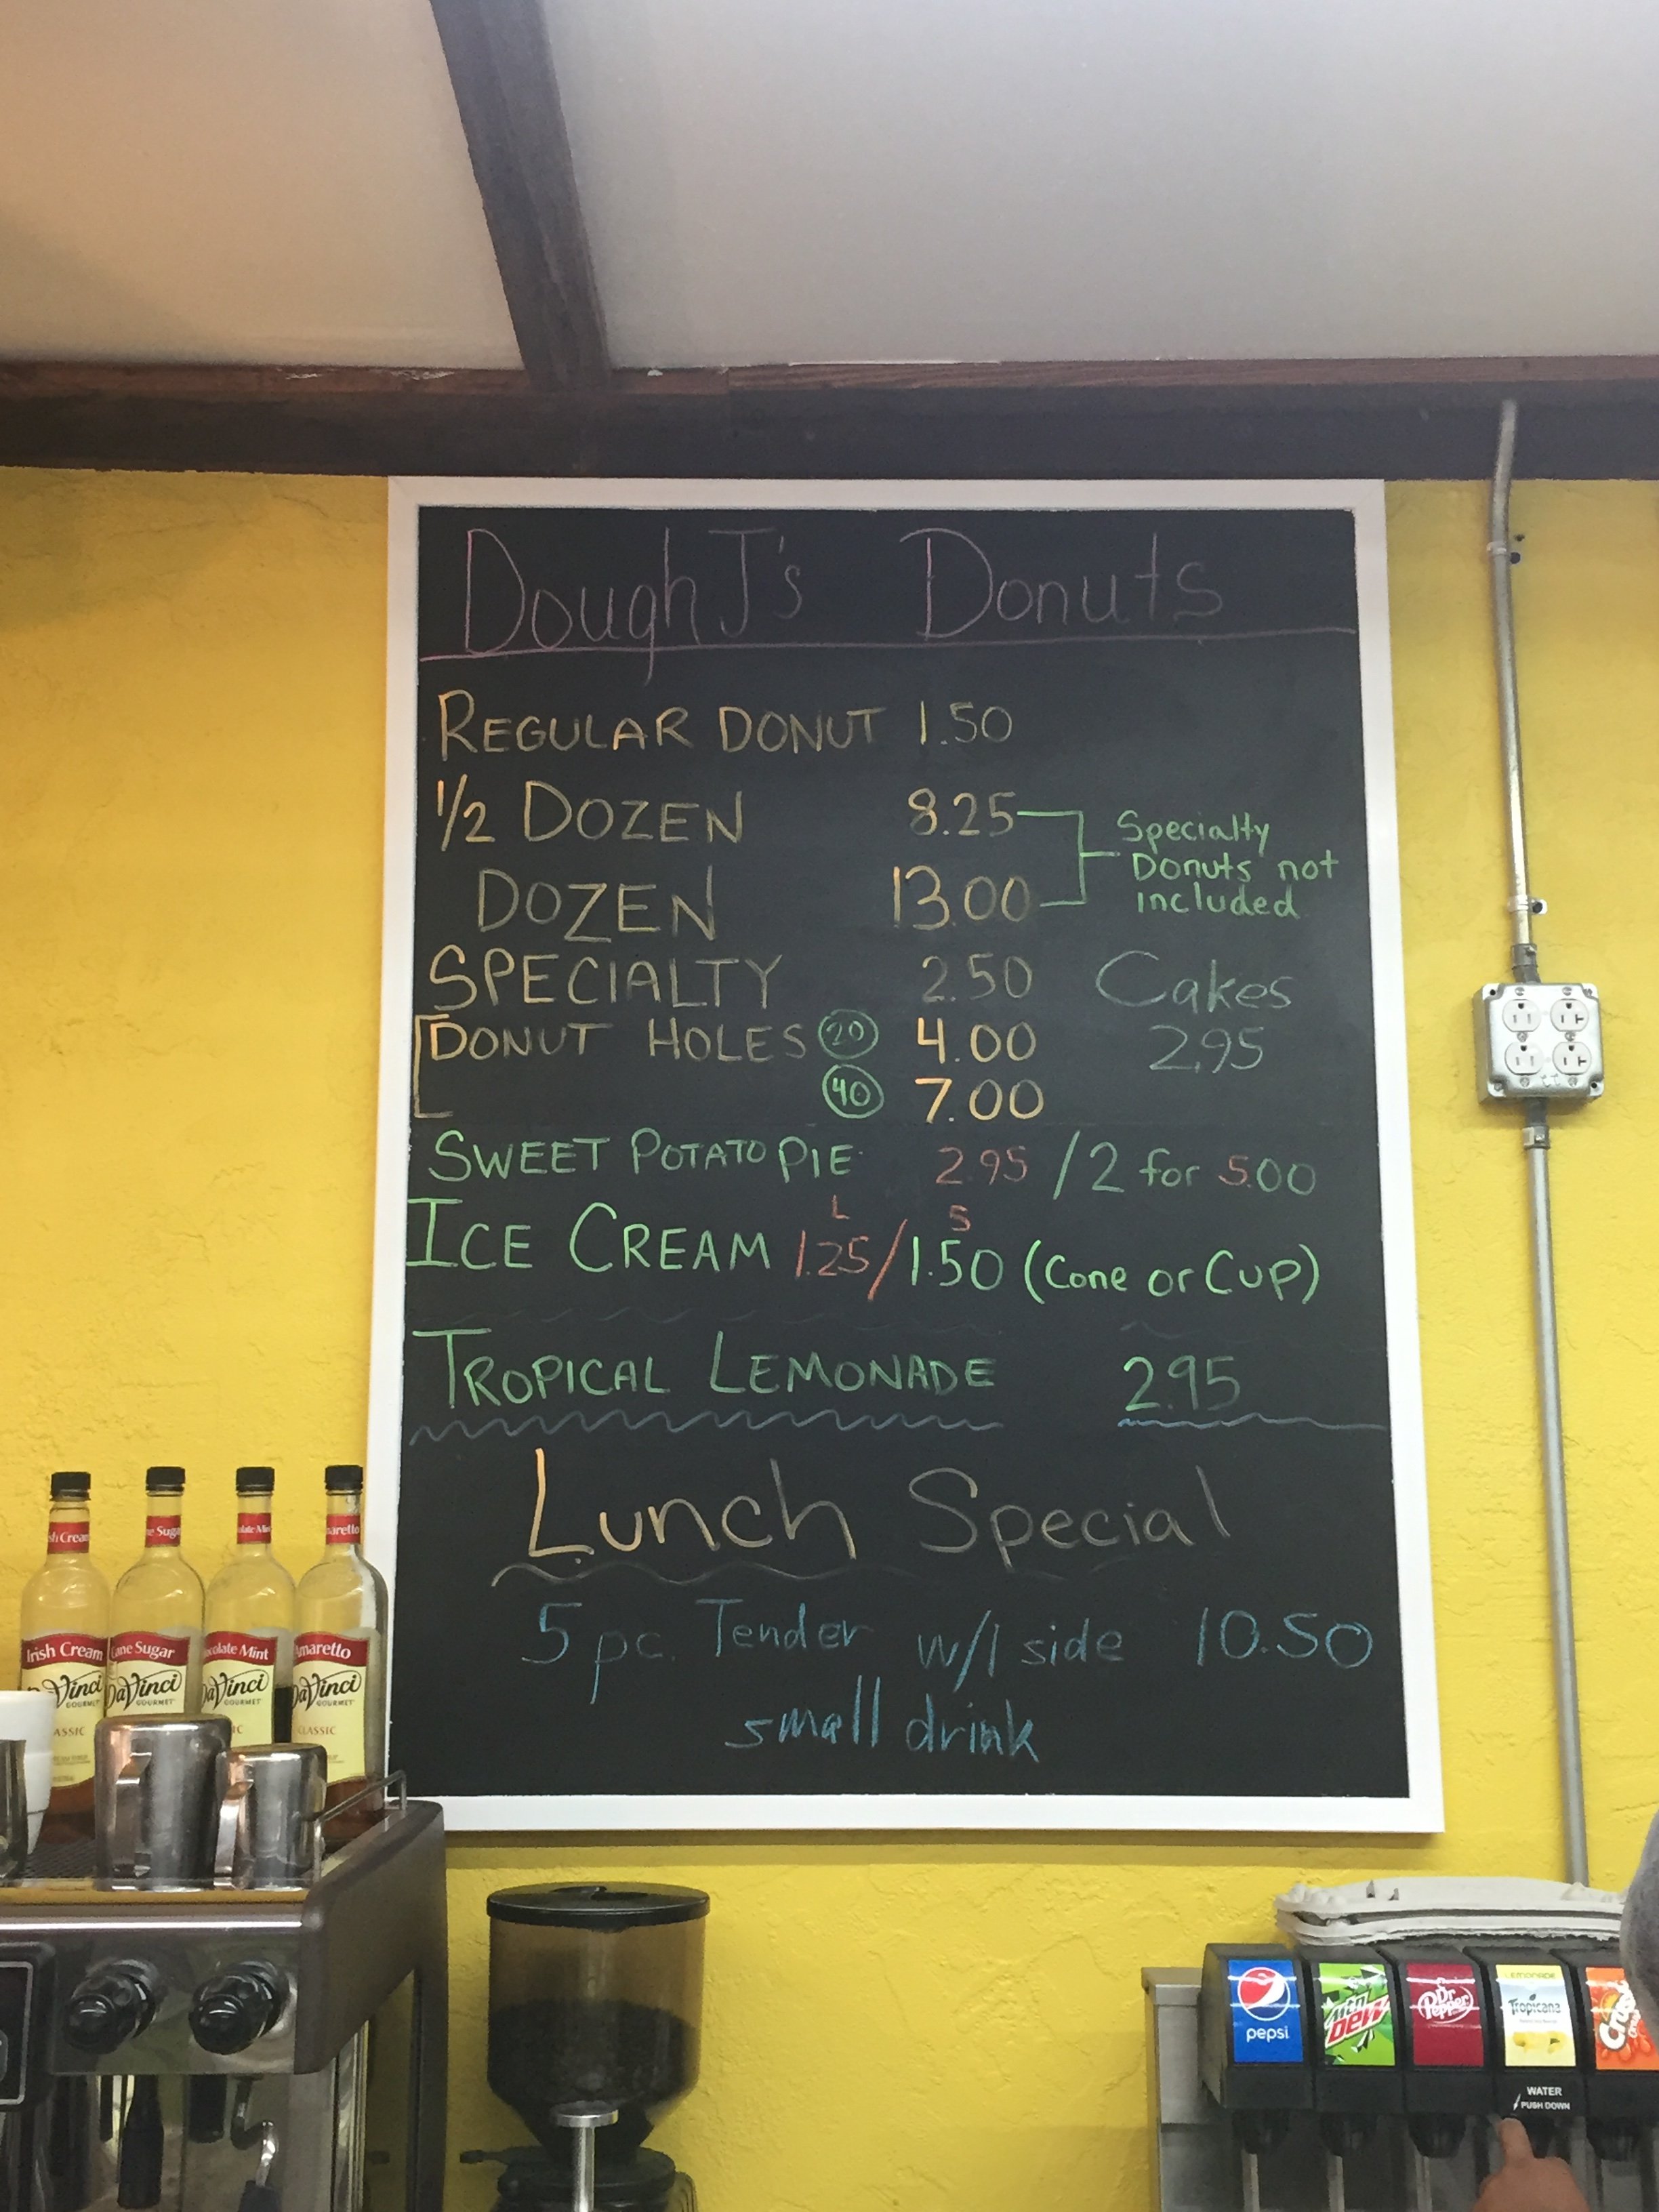 DoughJ's Donuts
REGULAR DONUT 1.50
1/2 DOZEN 8.25
DOZEN 13.00
Specialty
Donuts not
included
SPECIALTY 2.50
Cakes
2.95
DONUT HOLES 20 4.00
40 7.00
SWEET POTATO PIE 2.95 / 2 for 5.00
L S
ICE CREAM 1.25/1.50 (Cone or Cup)
TROPICAL LEMONADE 2.95
Lunch Special
5 pc. Tender w/1 side 10.50
small drink
sh Cream
ne Sugar
olate Min
maretto
Irish Cream
DaVinci
GOURMET
ASSIC
Cane Sugar
DaVinci
GOURMET
ocolate Mint
DaVinci
GOURMET
IC
Amaretto
DaVinci
GOURMET
CLASSIC
pepsi
Mtn
Dew
Dr
Pepper
LEMONADE
Tropicana
Crush
WATER
PUSH DOWN